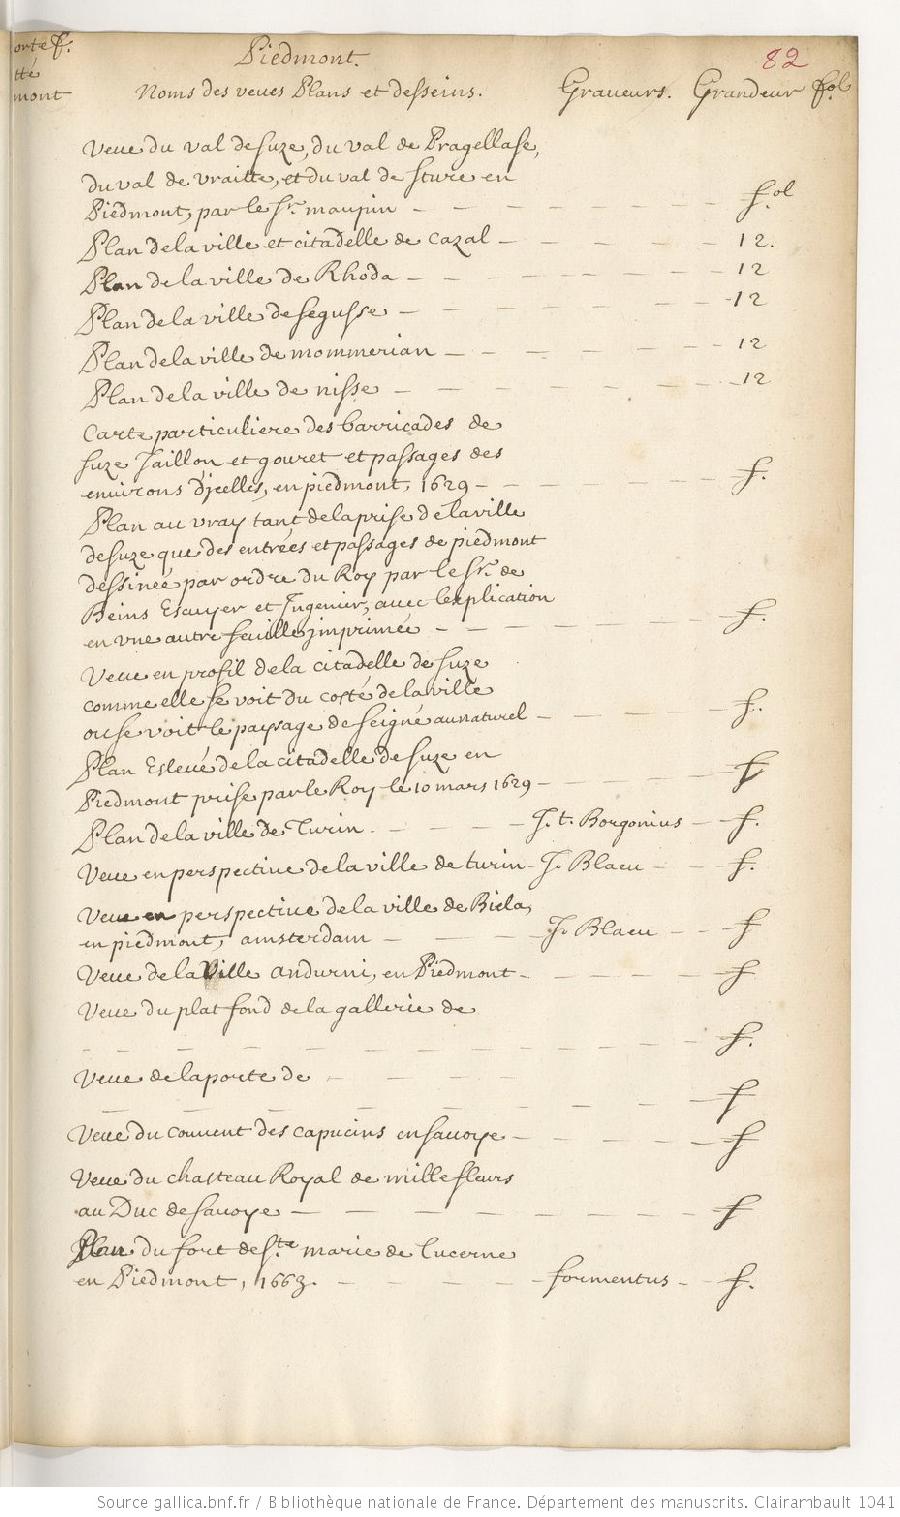 orte f.
tté
mont
Piedmont.
82
Noms des veues Plans et desseins. Graveurs. Grandeur fol
Veue du val de suze, du val de Pragellase,
du val de vraitte, et du val de sture en
Piedmont, par le Sr. maupin - - - - - - - f.ol
Plan de la ville et citadelle de Cazal - - - - - - 12.
Plan de la ville de Rhoda - - - - - - - - 12
Plan de la ville de segusse - - - - - - - - 12
Plan de la ville de mommerian - - - - - - - 12
Plan de la ville de nisse - - - - - - - - 12
Carte particuliere des barricades de
suze Jaillon et gouret et passages des
environs d'jcelles, en piedmont, 1629 - - - - - - - f.
Plan au vray tant de la prise de la ville
de suze que des entrées et passages de piedmont
dessinée par ordre du Roy par le Sr. de
Beins Escuyer et Ingenier, avec lexplication
en vne autre feuille jmprimée - - - - - - - f.
Veue en profil de la citadelle de suze
comme elle se voit du costé de la ville
ou se voit le paysage de seigné au naturel - - - - - f.
Plan Eslevé de la citadelle de suze en
Piedmont prise par le Roy le 10 mars 1629 - - - - - f
Plan de la ville de Turin. - - - - J. t. Borgonius - f.
Veue en perspective de la ville de turin - J. Blaeu - - f.
Veue en perspective de la ville de Biela,
en piedmont, amsterdam - - - - J. Blaeu - - f
Veue de la Ville andurni, en Piedmont - - - - - - f
Veue du plat fond de la gallerie de
- - - - - - - - - - - - - - f.
Veue de la porte de - - - -
- - - - - - - - - - f
Veue du couvent des capucins en savoye - - - - - - f
Veue du chasteau Royal de mille fleurs
au Duc de savoye - - - - - - - - - f
Plan du fort de Ste marie de lucerne
en Piedmont, 1663. - - - - - formentus - - f.
Source gallica.bnf.fr / Bibliothèque nationale de France. Département des manuscrits. Clairambault 1041